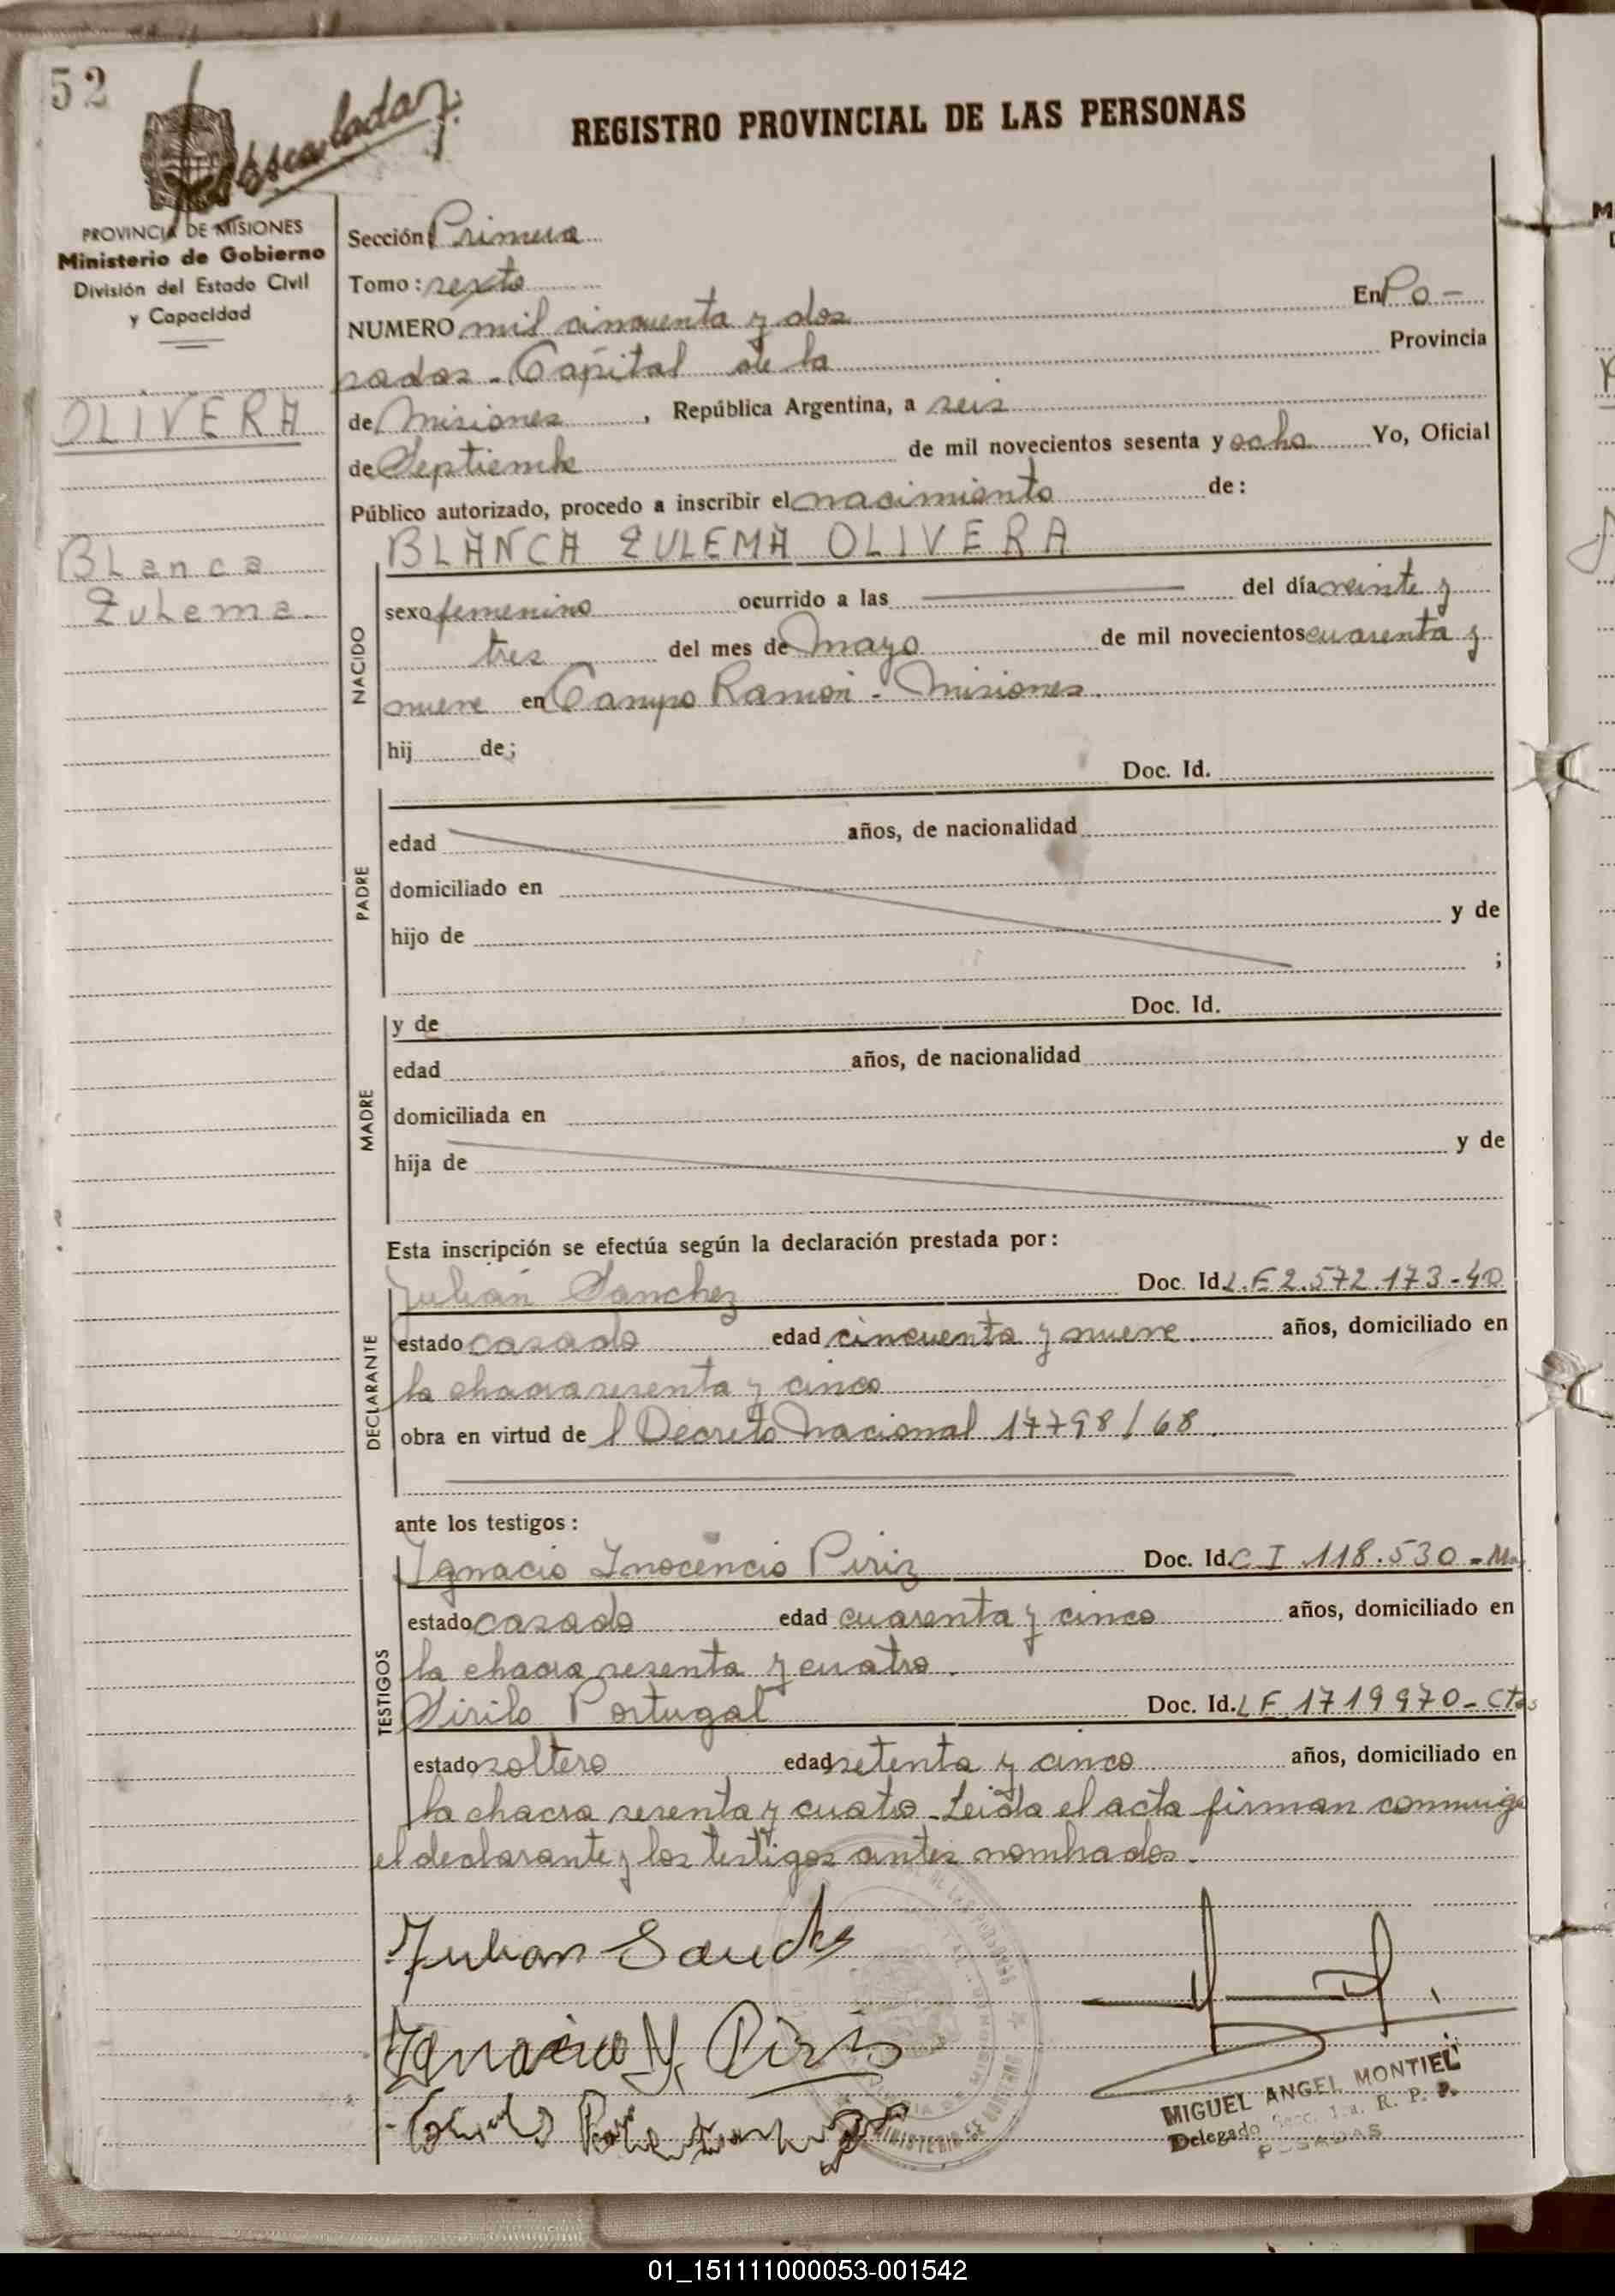 52
Escalada
REGISTRO PROVINCIAL DE LAS PERSONAS
PROVINCIA DE MISIONES
Ministerio de Gobierno
División del Estado Civil
y Capacidad
OLIVERA
Blanca
Zulema.
Sección Primera
Tomo: sexto
NUMERO mil cincuenta y dos En Po-
sadas - Capital de la Provincia
de Misiones, República Argentina, a seis
de Septiembre de mil novecientos sesenta y ocho Yo, Oficial
Público autorizado, procedo a inscribir el nacimiento de:
BLANCA ZULEMA OLIVERA
NACIDO
sexo femenino ocurrido a las del día veinte y
tres del mes de Mayo de mil novecientos cuarenta y
nueve en Campo Ramón - Misiones.
hij de;
Doc. Id.
PADRE
edad años, de nacionalidad
domiciliado en
hijo de y de
;
y de Doc. Id.
MADRE
edad años, de nacionalidad
domiciliada en
hija de y de
Esta inscripción se efectúa según la declaración prestada por:
Julián Sanchez Doc. Id. L.E 2.572.173-40
DECLARANTE
estado casado edad cincuenta y nueve. años, domiciliado en
la chacra sesenta y cinco
obra en virtud de l Decreto Nacional 17798/68.
ante los testigos:
Ignacio Inocencio Piriz Doc. Id. C I 118.530-M
TESTIGOS
estado casado edad cuarenta y cinco años, domiciliado en
la chacra sesenta y cuatro.
Sirilo Portugal Doc. Id. L E 1719970-Ctes
estado soltero edad setenta y cinco años, domiciliado en
la chacra sesenta y cuatro - Leída el acta firman conmigo
el declarante y los testigos antes nombrados.
Julian Sanches
Ignacio Y. Piris
MINISTERIO DE GOBIERNO
MIGUEL ANGEL MONTIEL
Delegado Secc. 1ra. R. P. P.
POSADAS
01_151111000053-001542